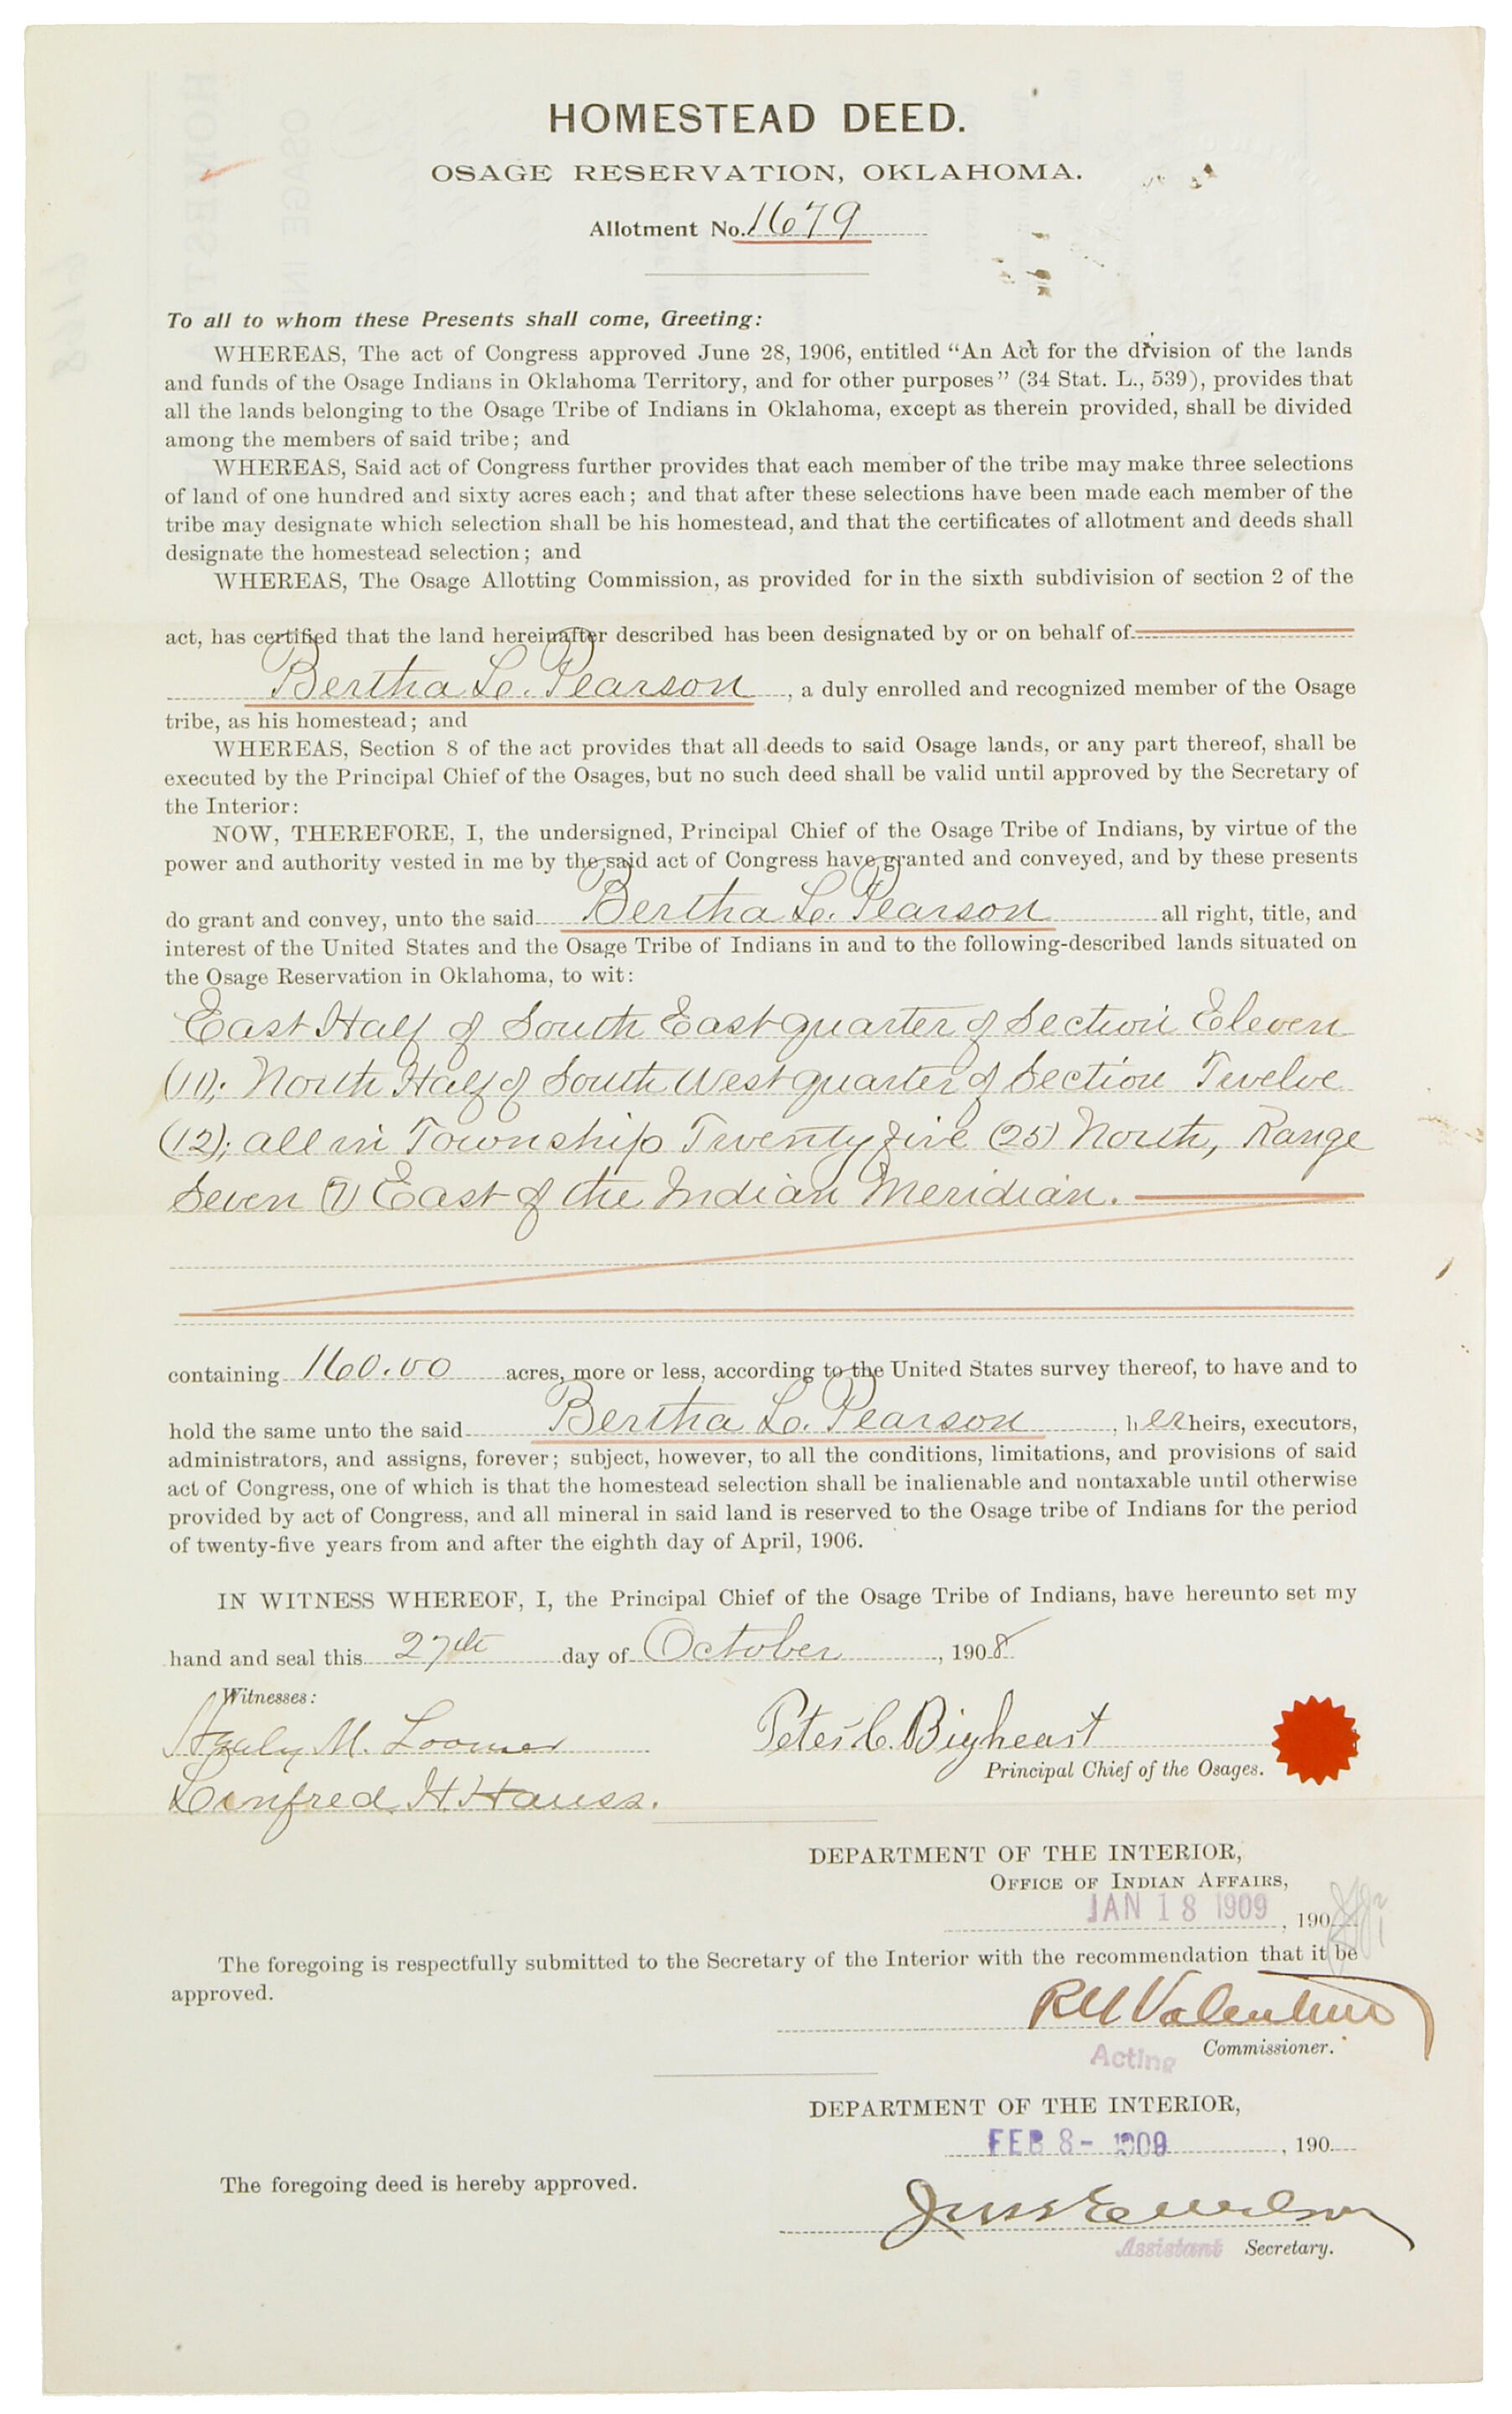 HOMESTEAD DEED.
OSAGE RESERVATION, OKLAHOMA.
Allotment No. 1679
To all to whom these Presents shall come, Greeting:
WHEREAS, The act of Congress approved June 28, 1906, entitled “An Act for the division of the lands
and funds of the Osage Indians in Oklahoma Territory, and for other purposes” (34 Stat. L., 539), provides that
all the lands belonging to the Osage Tribe of Indians in Oklahoma, except as therein provided, shall be divided
among the members of said tribe; and
WHEREAS, Said act of Congress further provides that each member of the tribe may make three selections
of land of one hundred and sixty acres each; and that after these selections have been made each member of the
tribe may designate which selection shall be his homestead, and that the certificates of allotment and deeds shall
designate the homestead selection; and
WHEREAS, The Osage Allotting Commission, as provided for in the sixth subdivision of section 2 of the
act, has certified that the land hereinafter described has been designated by or on behalf of
Bertha L. Pearson, a duly enrolled and recognized member of the Osage
tribe, as his homestead; and
WHEREAS, Section 8 of the act provides that all deeds to said Osage lands, or any part thereof, shall be
executed by the Principal Chief of the Osages, but no such deed shall be valid until approved by the Secretary of
the Interior:
NOW, THEREFORE, I, the undersigned, Principal Chief of the Osage Tribe of Indians, by virtue of the
power and authority vested in me by the said act of Congress have granted and conveyed, and by these presents
do grant and convey, unto the said Bertha L. Pearson all right, title, and
interest of the United States and the Osage Tribe of Indians in and to the following-described lands situated on
the Osage Reservation in Oklahoma, to wit:
East Half of South East quarter of Section Eleven
(11); North Half of South West quarter of Section Twelve
(12); all in Township Twenty five (25) North, Range
Seven (7) East of the Indian Meridian.
containing 160.00 acres, more or less, according to the United States survey thereof, to have and to
hold the same unto the said Bertha L. Pearson, her heirs, executors,
administrators, and assigns, forever; subject, however, to all the conditions, limitations, and provisions of said
act of Congress, one of which is that the homestead selection shall be inalienable and nontaxable until otherwise
provided by act of Congress, and all mineral in said land is reserved to the Osage tribe of Indians for the period
of twenty-five years from and after the eighth day of April, 1906.
IN WITNESS WHEREOF, I, the Principal Chief of the Osage Tribe of Indians, have hereunto set my
hand and seal this 27th day of October, 1908
Witnesses:
M. Loomer
Peter C. Bigheart
Principal Chief of the Osages.
H. Hauss.
DEPARTMENT OF THE INTERIOR,
OFFICE OF INDIAN AFFAIRS,
JAN 18 1909, 190
The foregoing is respectfully submitted to the Secretary of the Interior with the recommendation that it be
approved.
RG Valentine
Acting Commissioner.
DEPARTMENT OF THE INTERIOR,
FEB 8- 1909, 190
The foregoing deed is hereby approved.
Jesse E Wilson
Assistant Secretary.